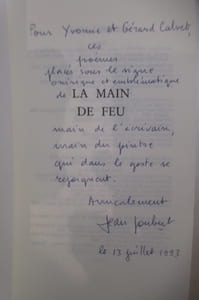 Pour Yvonne et Gérard Calvet,
ces
poèmes
placés sous le signe
onirique et emblématique
de LA MAIN
DE FEU
main de l'écrivain,
main du peintre
qui dans le geste se
rejoignent.
Amicalement
Jean Joubert
le 13 juillet 1993